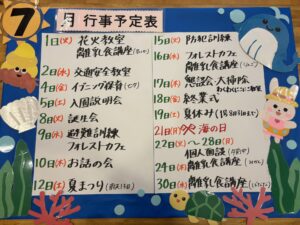 7月 行事予定表
1日(火) 花火教室
離乳食講座
2日(水) 交通安全教室
4日(金) イブニング保育
5日(土) 入園説明会
8日(火) 誕生会
9日(水) 避難訓練
フォレストカフェ
10日(木) お話の会
12日(土) 夏まつり
15日(火) 防犯訓練
16日(水) フォレストカフェ
離乳食講座
17日(木) 懇談会・大掃除
18日(金) 終業式
19日(土) 夏休み
21日(月) 海の日
22日(火)〜28日(月)
個人面談
24日(木) 離乳食講座
30日(水) 離乳食講座